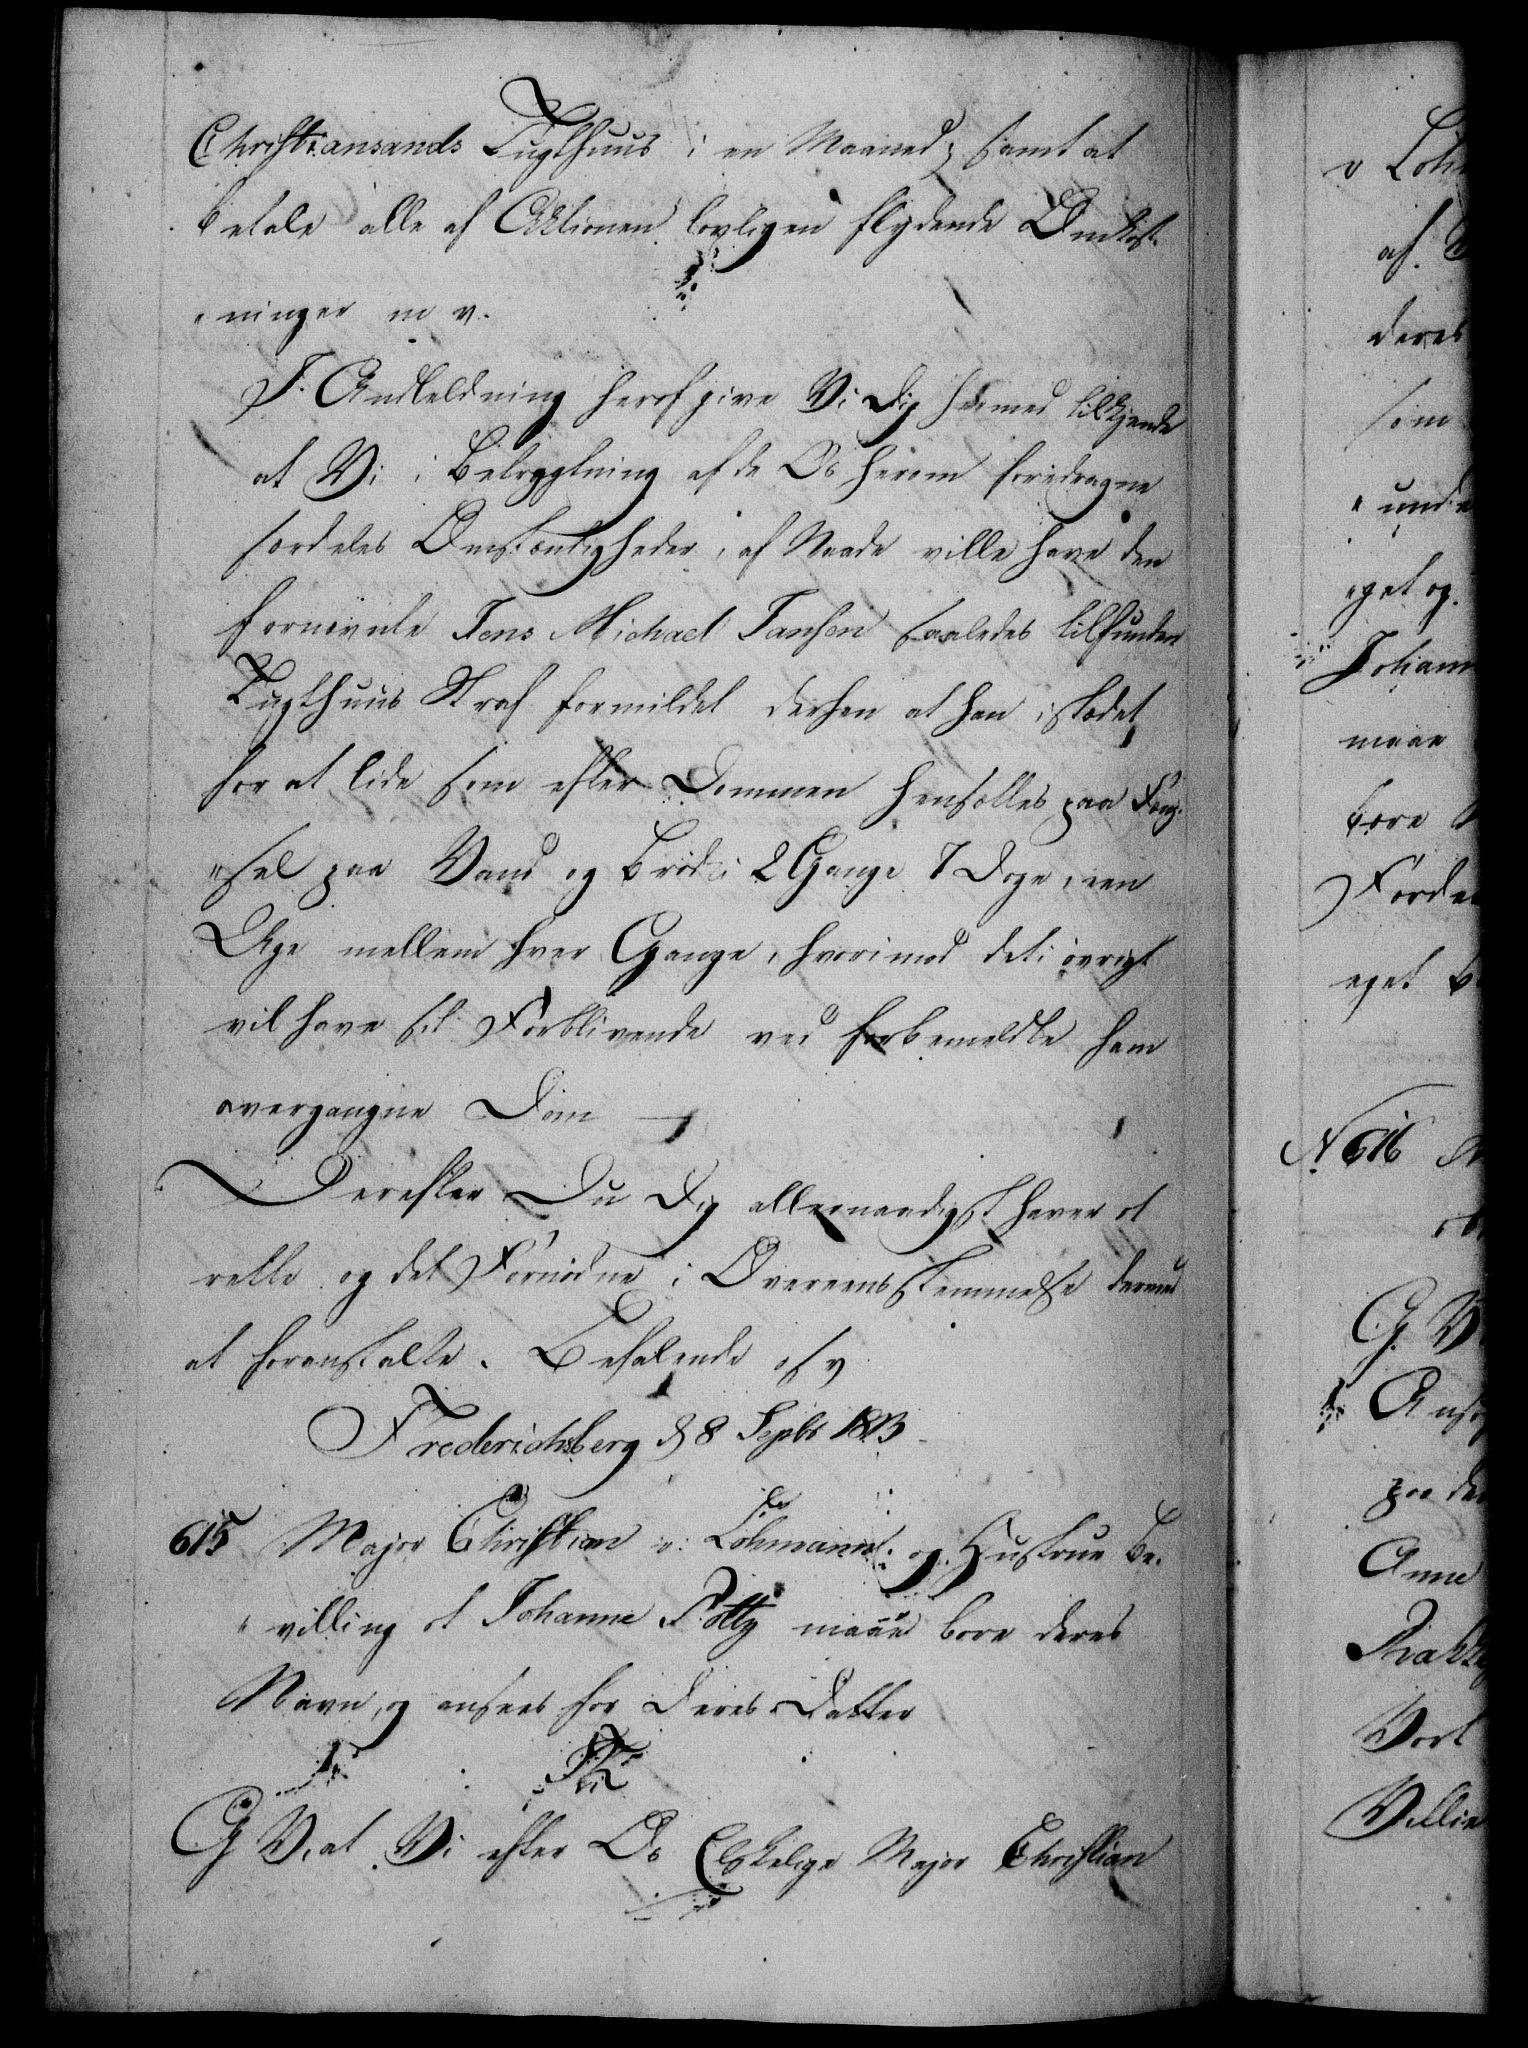 Christiansands Tugthuus i en Maaned; samt at
betale alle af Aktionen lovligen flydende Omkost-
ninger m v.
I Anledning heraf give Vi Dig hermed tilkjende
at Vi i Betragtning af de Os herom foredragne
særdeles Omstændigheder, af Naade ville have den
fornævnte Jens Michael Jansen saaledes tilfunden
Tugthuus Straf formildet derhen at han istædet
for at lide som efter Dommen hensættes paa Fæng-
sel paa Vand og Brød i 2 Gange 7 Dage, een
Dage mellem hver Gange, hvorimod det i øvrigt
vil have sit Forblivende ved forbemeldte ham
overgangne Dom
Derefter Du Dig allernaadigst haver at
rette og det Fornødne i Overeensstemmelse dermed
at foranstalte. Befalende osv
Frederichsberg d 8 Septbr 1813
615 Major Christian v. Lohmann og Hustrue Be-
villing at Johanne maae bære deres
Navn, og ansees for Deres Datter
G V, at Vi efter Os Elskelige Major Christian
v Loh
af
deres
som
unde
eget og
Johann
maae
bære
Forde
eget
N 616
G. V
Ansø
paa de
Anne
Vort
Villie